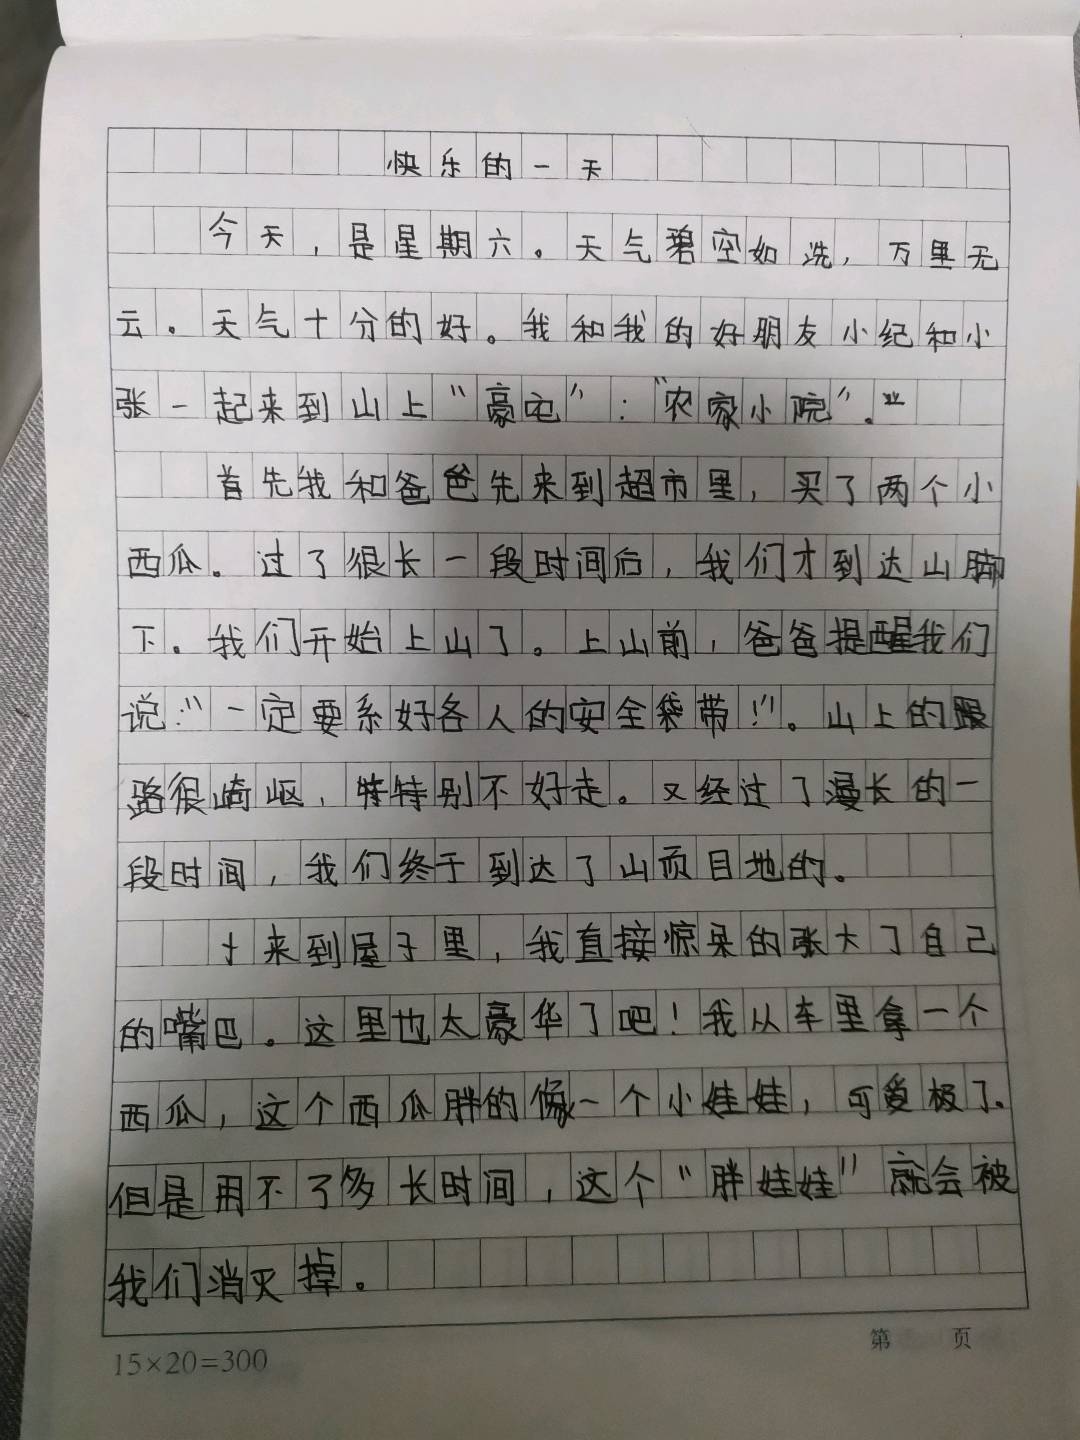 快乐的一天
今天，是星期六。天气碧空如洗，万里无
云。天气十分的好。我和我的好朋友小纪和小
张一起来到山上“豪宅”：“农家小院”。
首先我和爸爸先来到超市里，买了两个小
西瓜。过了很长一段时间后，我们才到达山脚
下。我们开始上山了。上山前，爸爸提醒我们
说：“一定要系好各人的安全袋带！”。山上的
路很崎岖，特特别不好走。又经过了漫长的一
段时间，我们终于到达了山页目地的。
才来到屋子里，我直接惊呆的张大了自己
的嘴巴。这里也太豪华了吧！我从车里拿一个
西瓜，这个西瓜胖的像一个小娃娃，可爱极了。
但是用不了多长时间，这个“胖娃娃”就会被
我们消灭掉。
第 页
15×20=300